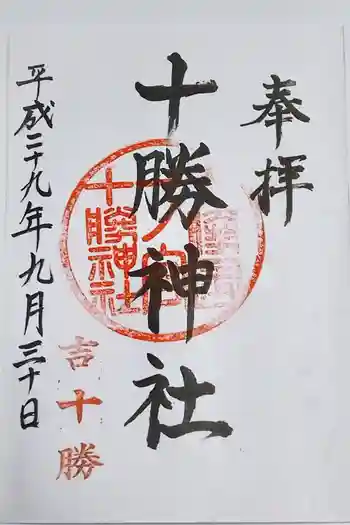 奉拝
十勝神社
十勝神社
平成二十九年九月三十日
吉十勝